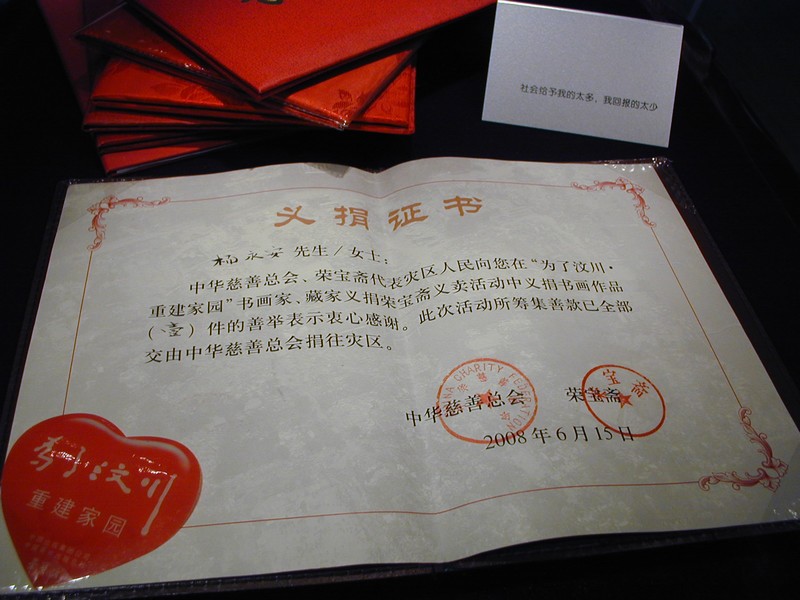 社会给予我的太多，我回报的太少
义捐证书
杨永安 先生/女士：
中华慈善总会、荣宝斋代表灾区人民向您在“为了汶川·
重建家园”书画家、藏家义捐荣宝斋义卖活动中义捐书画作品
（壹）件的善举表示衷心感谢。此次活动所筹集善款已全部
交由中华慈善总会捐往灾区。
中华慈善总会 荣宝斋
2008年6月15日
CHARITY FEDERATION
为了汶川
重建家园